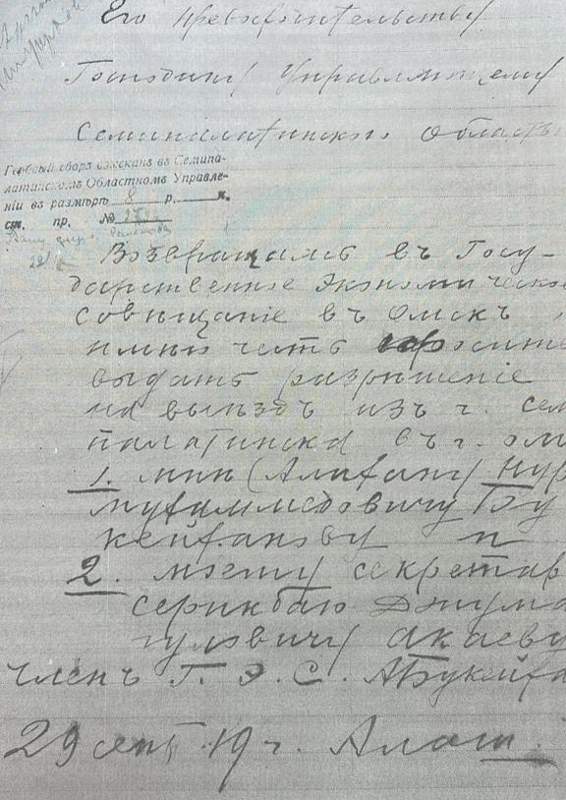 Его Превосходительству
Господину Управляющему
Семипалатинского област
Гербовый сборъ взысканъ въ Семипа-
латинскомъ Областномъ Управле-
ніи въ размѣрѣ 8 р. к.
пр. №
Возвращаясь въ Госу-
дарственное Экономическое
совѣщаніе въ Омскъ,
имѣю честь просить
выдать разрѣшеніе
на выѣздъ изъ г. Сем
палатинска въ г. Ом
1. мнѣ (Алихану Нур
мухаммедовичу Бу
кейханову и
2. моему секретар
Серикбаю Джума
гуловичу Акаеву
членъ Г. Э. С. АБукейха
29 сент. 19 г. Алаш.